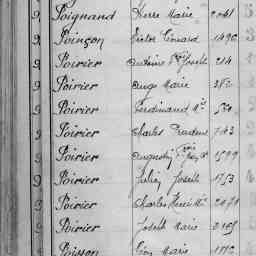 9 Poignand Pierre Marie 2041
9 Poinçon Victor Edouard 1490
9 Poirier Antoine Joseph 214
9 Poirier Ange Marie 382
9 Poirier Ferdinand
9 Poirier Charles Prudent 743
9 Poirier Augustin 1599
9 Poirier Julien Joseph 1753
9 Poirier Charles Henri 2071
9 Poirier Joseph Marie
9 Poisson Marie